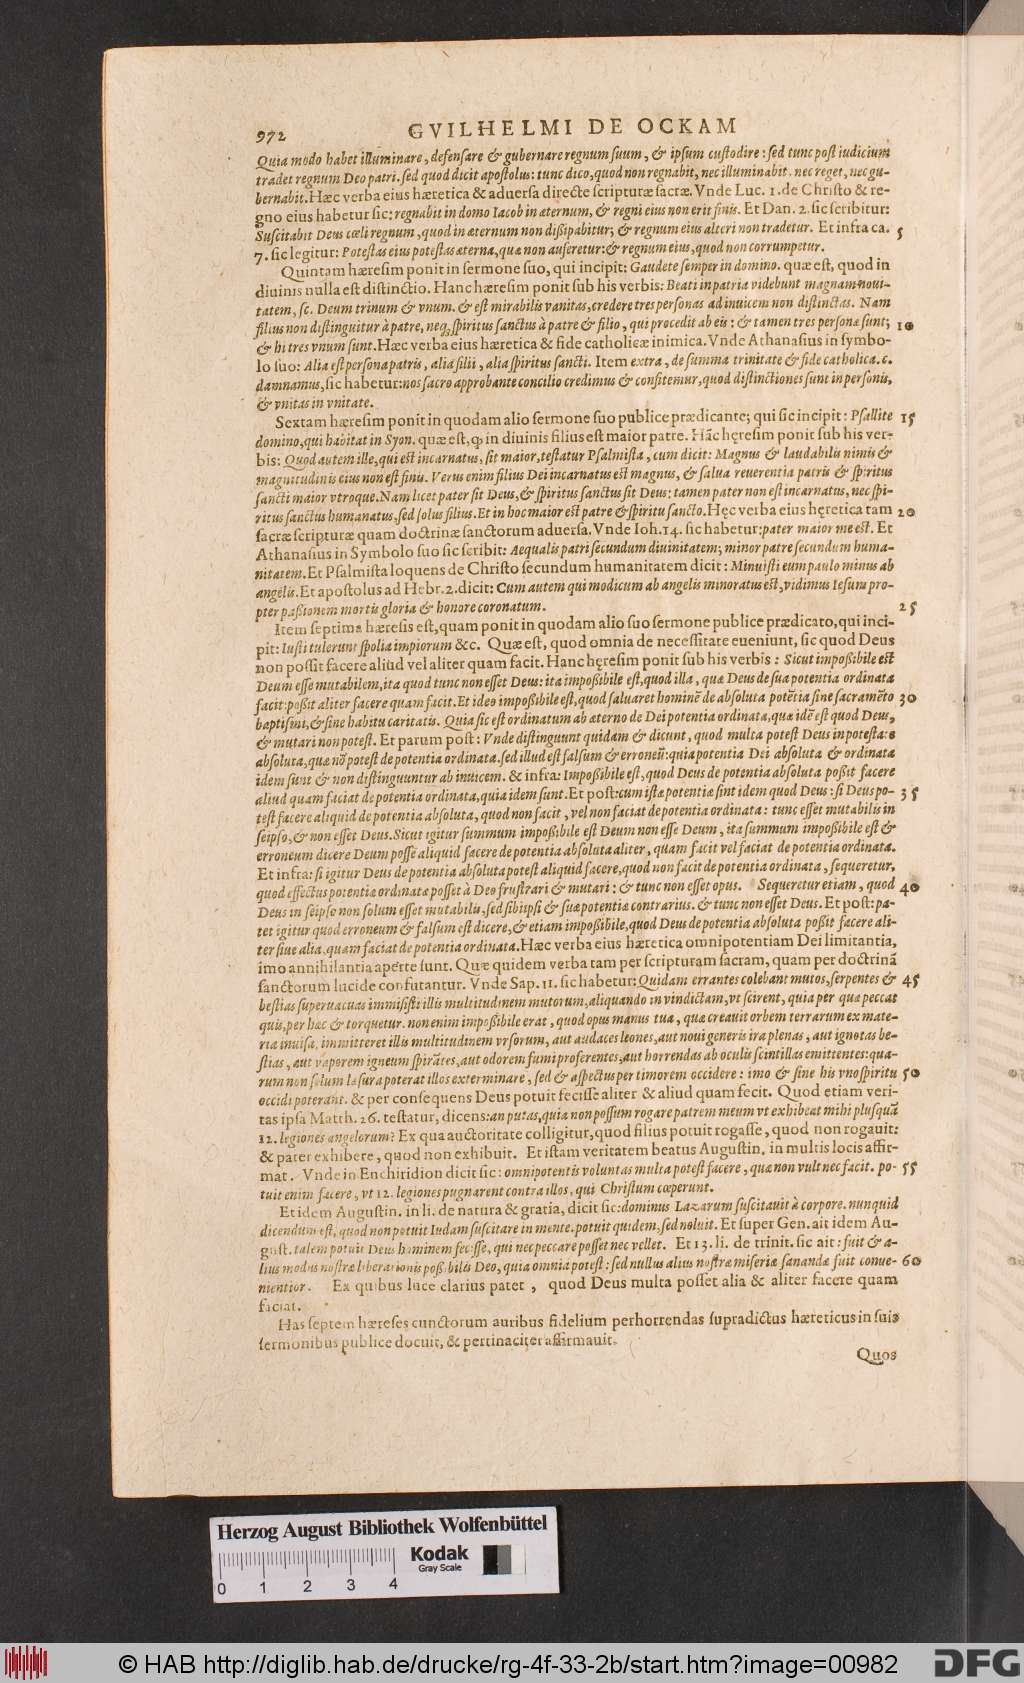 972 GVILHELMI DE OCKAM
Quia modo habet illuminare, defensare & gubernare regnum suum, & ipsum custodire: sed tunc post iudicium
tradet regnum Deo patri. sed quod dicit apostolus: tunc dico, quod non regnabit, nec illuminabit. nec reget, nec gu-
bernabit. Hæc verba eius hæretica & aduersa directe scripturæ sacræ. Vnde Luc. 1. de Christo & re-
gno eius habetur sic: regnabit in domo Iacob in æternum, & regni eius non erit finis. Et Dan. 2. sic scribitur:
Suscitabit Deus cœli regnum, quod in æternum non dißipabitur; & regnum eius alteri non tradetur. Et infra ca. 5
7. sic legitur: Potestas eius potestas æterna, quæ non auferetur: & regnum eius, quod non corrumpetur.
Quintam hæresim ponit in sermone suo, qui incipit: Gaudete semper in domino. quæ est, quod in
diuinis nulla est distinctio. Hanc hæresim ponit sub his verbis: Beati in patria videbunt magnam noui-
tatem, sc. Deum trinum & vnum. & est mirabilis vanitas, credere tres personas ad inuicem non distinctas. Nam
filius non distinguitur à patre, neq; spiritus sanctus à patre & filio, qui procedit ab eis: & tamen tres personæ sunt; 10
& hi tres vnum sunt. Hæc verba eius hæretica & fide catholicæ inimica. Vnde Athanasius in symbo-
lo suo: Alia est persona patris, alia filii, alia spiritus sancti. Item extra, de summa trinitate & fide catholica. c.
damnamus, sic habetur: nos sacro approbante concilio credimus & confitemur, quod distinctiones sunt in personis,
& vnitas in vnitate.
Sextam hæresim ponit in quodam alio sermone suo publice prædicante; qui sic incipit: Psallite 15
domino, qui habitat in Syon. quæ est, ꝙ in diuinis filius est maior patre. Hãc hęresim ponit sub his ver-
bis: Quod autem ille, qui est incarnatus, sit maior, testatur Psalmista, cum dicit: Magnus & laudabilis nimis &
magnitudinis eius non est finis. Verus enim filius Dei incarnatus est magnus, & salua reuerentia patris & spiritus
sancti maior vtroque. Nam licet pater sit Deus, & spiritus sanctus sit Deus: tamen pater non est incarnatus, nec spi-
ritus sanctus humanatus, sed solus filius. Et in hoc maior est patre & spiritu sancto. Hęc verba eius hęretica tam 20
sacræ scripturæ quam doctrinæ sanctorum aduersa. Vnde Ioh. 14. sic habetur: pater maior me est. Et
Athanasius in Symbolo suo sic scribit: Aequalis patri secundum diuinitatem; minor patre secundum huma-
nitatem. Et Psalmista loquens de Christo secundum humanitatem dicit: Minuisti eum paulo minus ab
angelis. Et apostolus ad Hebr. 2. dicit: Cum autem qui modicum ab angelis minoratus est, vidimus Iesum pro-
pter paßionem mortis gloria & honore coronatum. 25
Item septima hæresis est, quam ponit in quodam alio suo sermone publice prædicato, qui inci-
pit: Iusti tulerunt spolia impiorum &c. Quæ est, quod omnia de necessitate eueniunt, sic quod Deus
non possit facere aliud vel aliter quam facit. Hanc hęresim ponit sub his verbis: Sicut impoßibile est
Deum esse mutabilem, ita quod tunc non esset Deus: ita impoßibile est, quod illa, quæ Deus de sua potentia ordinata
facit: poßit aliter facere quam facit. Et ideo impoßibile est, quod saluaret hominẽ de absoluta potẽtia sine sacramẽto 30
baptismi, & sine habitu caritatis. Quia sic est ordinatum ab æterno de Dei potentia ordinata, quæ idẽ est quod Deus,
& mutari non potest. Et parum post: Vnde distinguunt quidam & dicunt, quod multa potest Deus in potestate
absoluta, quæ nõ potest de potentia ordinata. sed illud est falsum & erroneũ: quia potentia Dei absoluta & ordinata
idem sunt & non distinguuntur ab inuicem. & infra: Impoßibile est, quod Deus de potentia absoluta poßit facere
aliud quam faciat de potentia ordinata, quia idem sunt. Et post: cum istæ potentiæ sint idem quod Deus: si Deus po- 35
test facere aliquid de potentia absoluta, quod non facit, vel non faciat de potentia ordinata: tunc esset mutabilis in
seipso, & non esset Deus. Sicut igitur summum impoßibile est Deum non esse Deum, ita summum impoßibile est &
erroneum dicere Deum posse aliquid facere de potentia absoluta aliter, quam facit vel faciat de potentia ordinata.
Et infra: si igitur Deus de potentia absoluta potest aliquid facere, quod non facit de potentia ordinata, sequeretur,
quod effectus potentia ordinatæ posset à Deo frustrari & mutari: & tunc non esset opus. Sequeretur etiam, quod 40
Deus in seipso non solum esset mutabilis, sed sibiipsi & suæ potentiæ contrarius. & tunc non esset Deus. Et post: pa-
tet igitur quod erroneum & falsum est dicere, & etiam impoßibile, quod Deus de potentia absoluta poßit facere ali-
ter siue alia, quam faciat de potentia ordinata. Hæc verba eius hæretica omnipotentiam Dei limitantia,
imo annihilantia aperte sunt. Quæ quidem verba tam per scripturam sacram, quam per doctrinã
sanctorum lucide confutantur. Vnde Sap. 11. sic habetur: Quidam errantes colebant mutos, serpentes & 45
bestias superuacuas immisisti illis multitudinem mutorum, aliquando in vindictam, vt scirent, quia per quæ peccat
quis, per hæc & torquetur. non enim impoßibile erat, quod opus manus tuæ, quæ creauit orbem terrarum ex mate-
ria inuisa, immitteret illis multitudinem vrsorum, aut audaces leones, aut noui generis ira plenas, aut ignotas be-
stias, aut vaporem igneum spirãtes, aut odorem fumi proferentes, aut horrendas ab oculis scintillas emittentes: qua-
rum non solum læsura poterat illos exterminare, sed & aspectus per timorem occidere: imo & sine his vno spiritu 50
occidi poterant. & per consequens Deus potuit fecisse aliter & aliud quam fecit. Quod etiam veri-
tas ipsa Matth. 26. testatur, dicens: an putas, quia non possum rogare patrem meum vt exhibeat mihi plusquã
12. legiones angelorum? Ex qua auctoritate colligitur, quod filius potuit rogasse, quod non rogauit:
& pater exhibere, quod non exhibuit. Et istam veritatem beatus Augustin. in multis locis affir-
mat. Vnde in Enchiridion dicit sic: omnipotentis voluntas multa potest facere, quæ non vult nec facit. po- 55
tuit enim facere, vt 12. legiones pugnarent contra illos, qui Christum cœperunt.
Et idem Augustin. in li. de natura & gratia, dicit sic: dominus Lazarum suscitauit à corpore. nunquid
dicendum est, quod non potuit Iudam suscitare in mente. potuit quidem, sed noluit. Et super Gen. ait idem Au-
gust. talem potuit Deus hominem fecisse, qui nec peccare posset nec vellet. Et 13. li. de trinit. sic ait: fuit & a-
lius modus nostræ liberationis poßibilis Deo, quia omnia potest: sed nullus alius nostræ miseriæ sanandæ fuit conue- 60
nientior. Ex quibus luce clarius patet, quod Deus multa posset alia & aliter facere quam
faciat.
Has septem hæreses cunctorum auribus fidelium perhorrendas supradictus hæreticus in suis
sermonibus publice docuit, & pertinaciter affirmauit.
Quos
Herzog August Bibliothek Wolfenbüttel
Kodak
Gray Scale
0 1 2 3 4
© HAB http://diglib.hab.de/drucke/rg-4f-33-2b/start.htm?image=00982 DFG